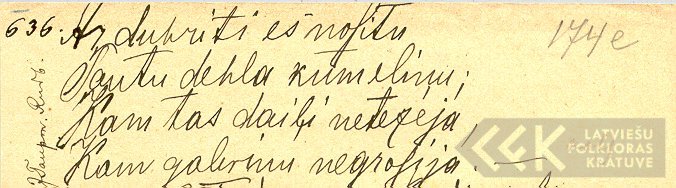 636. Ar dubriti es nositu 174e
Tautu dehla kumelinu;
Kam tas daili netezeja,
Kam galvinu negrosija. —
LATVIEŠU
FOLKLORAS
KRĀTUVE